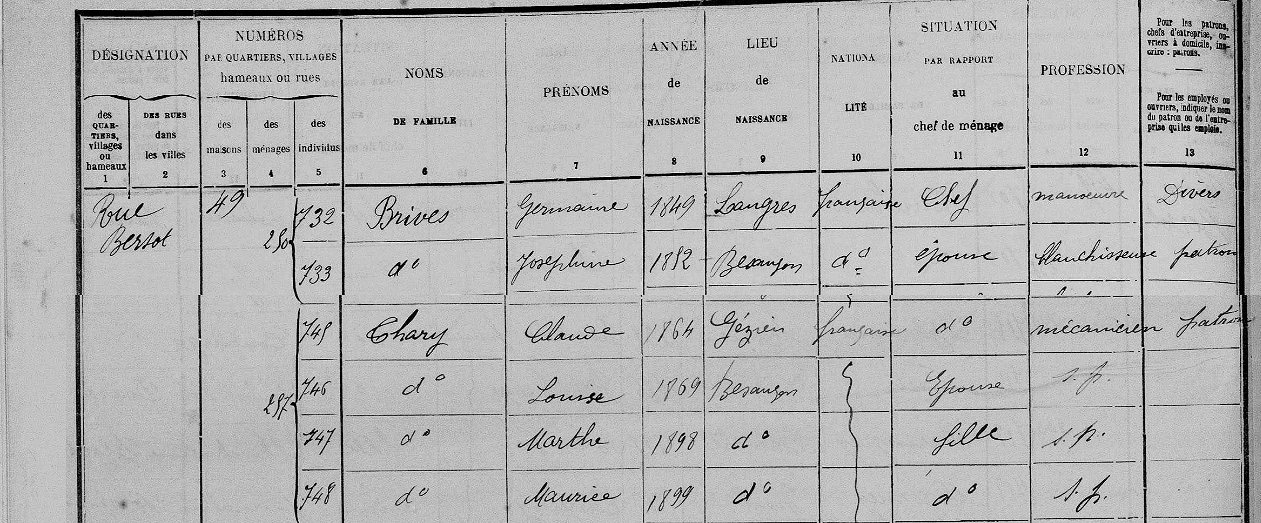 DÉSIGNATION
NUMÉROS
PAR QUARTIERS, VILLAGES
hameaux ou rues
NOMS
DE FAMILLE
PRÉNOMS
ANNÉE
de
NAISSANCE
LIEU
de
NAISSANCE
NATIONA
LITÉ
SITUATION
PAR RAPPORT
au
chef de ménage
PROFESSION
Pour les patrons,
chefs d'entreprise, ou-
vriers à domicile, ins-
crire : patrons.
Pour les employés ou
ouvriers, indiquer le nom
du patron ou de l'entre-
prise qui les emploie.
des
QUAR-
TIERS,
villages
ou
hameaux
DES RUES
dans
les villes
des
maisons
des
ménages
des
individus
1 2 3 4 5 6 7 8 9 10 11 12 13
Rue Bersot 49 732 Brives Germaine 1849 Langres française Chef manoeuvre Divers
250 733 do Joséphine 1852 Besançon do épouse blanchisseuse patron
745 Thary Claude 1864 Gézier française do mécanicien patron
257 746 do Louise 1869 Besançon Epouse s. p.
747 do Marthe 1898 do fille s. p.
748 do Maurice 1899 do do s. p.